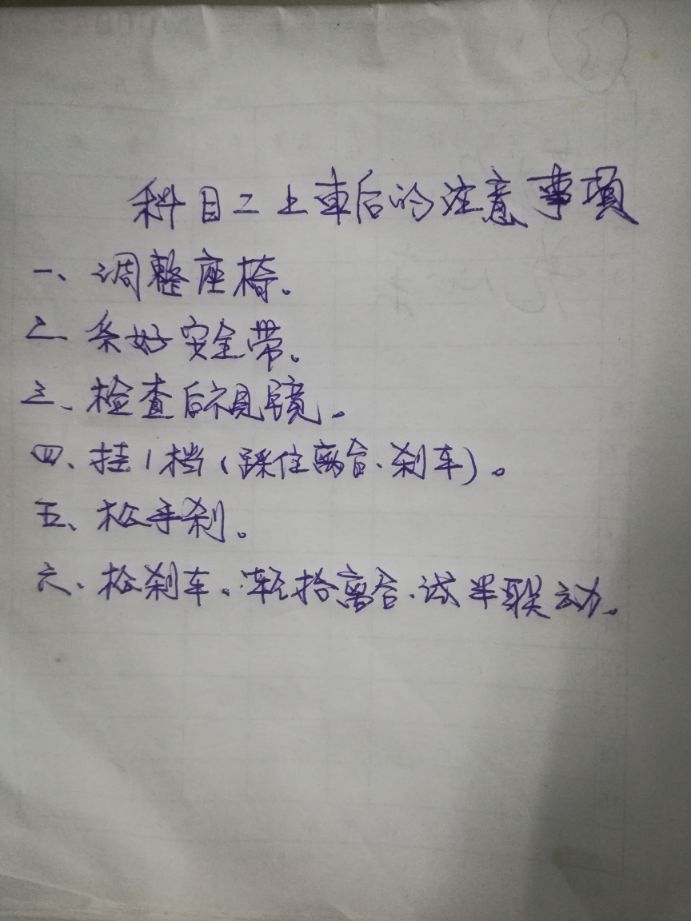 科目二上車后的注意事項
一、调整座椅。
二、系好安全带。
三、检查后视镜。
四、挂1档(踩住离合、刹车)。
五、松手刹。
六、松刹车。轻抬离合、试半联动。